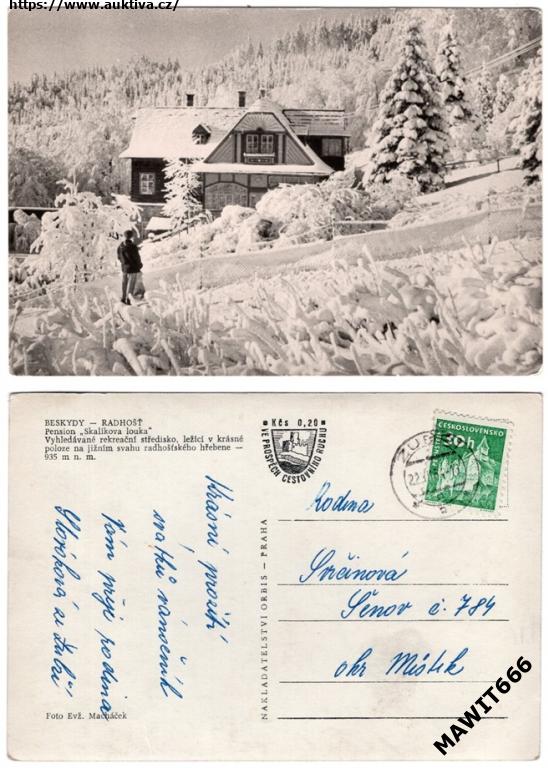 https://www.auktiva.cz/
BESKYDY — RADHOŠŤ
Pension „Skalíkova louka"
Vyhledávané rekreační středisko, ležící v krásné
poloze na jižním svahu radhošťského hřebene —
935 m n. m.
Kčs 0,20
VE PROSPĚCH CESTOVNÍHO RUCHU
ČESKOSLOVENSKO
30h
Krásné prožití
svátků vánočních
Vám přeje rodina
ze Zubří
Rodina
Svičinová
Šenov č. 784
okr Místek
NAKLADATELSTVÍ ORBIS — PRAHA
Foto Evž. Macháček
MAWIT666